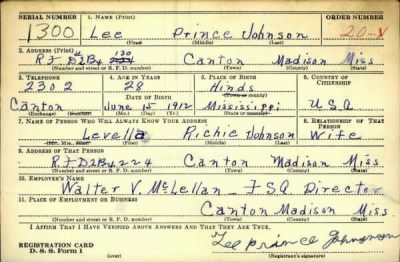 SERIAL NUMBER 1. NAME (Print) ORDER NUMBER
1300 Lee Prince Johnson 20-V
(First) (Middle) (Last)
2. ADDRESS (Print)
R.F.D 2 B4 130 Canton Madison Miss
(Number and street or R. F. D. number) (Town) (County) (State)
3. TELEPHONE 4. AGE IN YEARS 5. PLACE OF BIRTH 6. COUNTRY OF CITIZENSHIP
2302 28 Hinds
DATE OF BIRTH (Town or county)
Canton June 15 1912 Mississippi U.S.A
(Exchange) (Mo.) (Day) (Yr.) (State or country)
7. NAME OF PERSON WHO WILL ALWAYS KNOW YOUR ADDRESS 8. RELATIONSHIP OF THAT PERSON
Levella Richie Johnson Wife
(Mr., Mrs., Miss) (First) (Middle) (Last)
9. ADDRESS OF THAT PERSON
R.F.D 2 B4 224 Canton Madison Miss
(Number and street or R. F. D. number) (Town) (County) (State)
10. EMPLOYER'S NAME
Walter V. McLellan - F S A Director
11. PLACE OF EMPLOYMENT OR BUSINESS
Canton Madison Miss
(Number and street or R. F. D. number) (Town) (County) (State)
I AFFIRM THAT I HAVE VERIFIED ABOVE ANSWERS AND THAT THEY ARE TRUE.
REGISTRATION CARD
D. S. S. Form 1
Lee prince Johnson
(Registrant's signature)